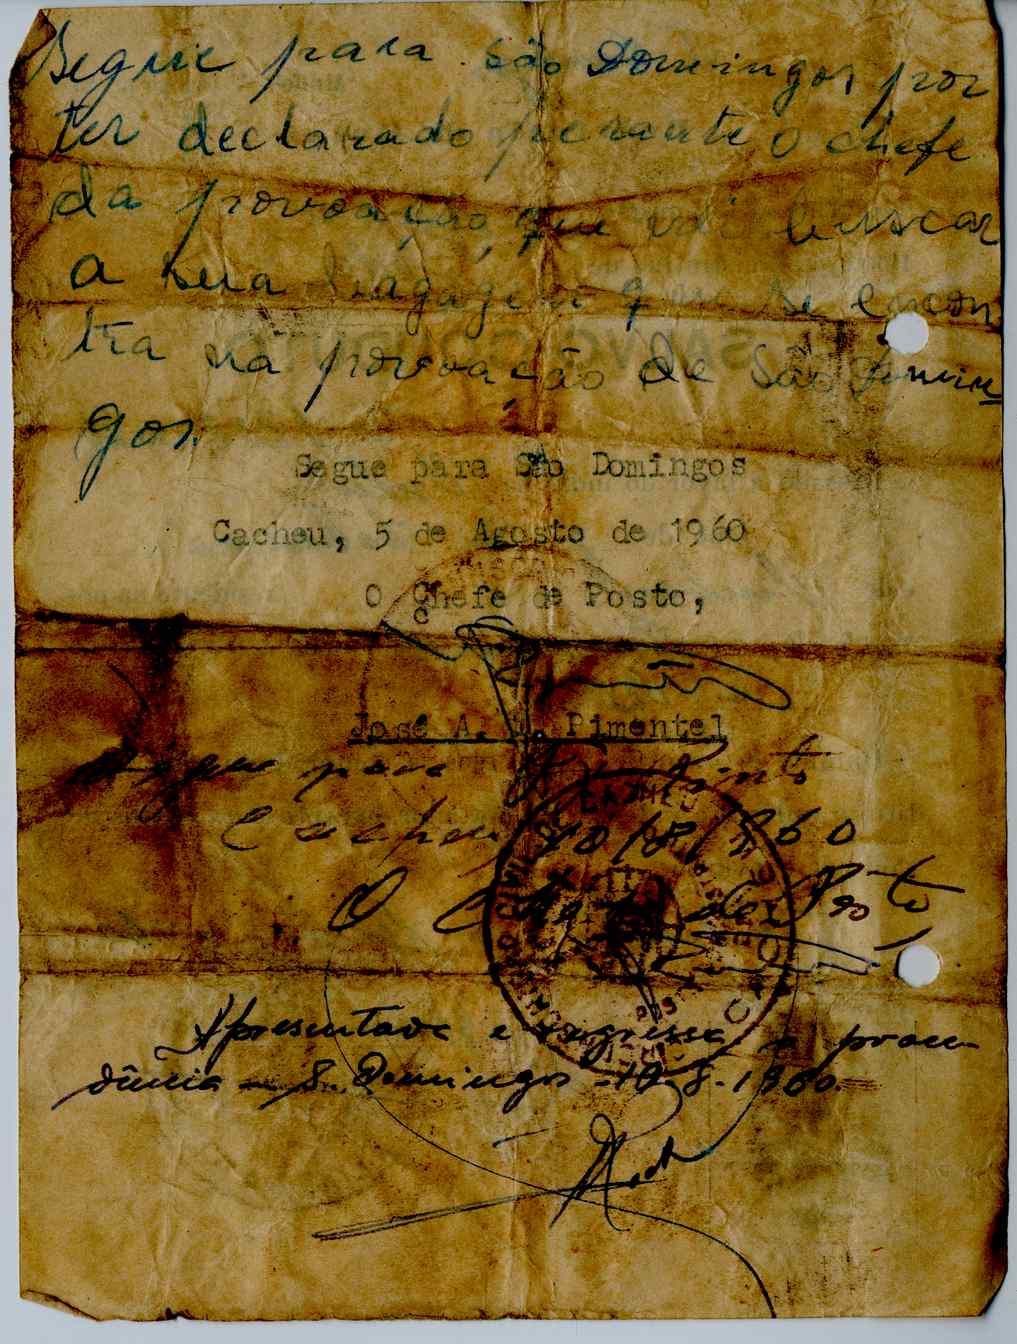 Segue para São Domingos por
ter declarado perante o chefe
da provoação, que vai buscar
a sua bagagem que se encon
tra na provoação de São Domin
gos.
Segue para São Domingos
Cacheu, 5 de Agosto de 1960
O Chefe de Posto,
José A. Pimentel
Segue para Pinto
Cacheu, 10/8/960
O Chefe de Posto
Apresentada e regressa a proce-
dência - S. Domingos - 19-8-1960